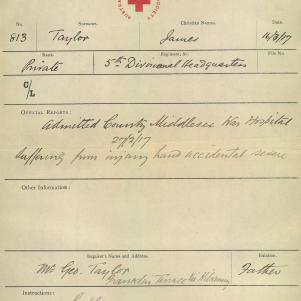 No. Surname. Christian Names. Date.
813 Taylor James 14/3/17
Rank Regiment, &c. File No.
Private 5th Divisional Headquarters
C/L
OFFICIAL REPORTS:
Admitted County Middlesex War Hospital
27/2/17
suffering from injury hand accidental severe
Other Information:
Inquirer's Name and Address. Relation.
Mr Geo. Taylor Father
Franklin Terrace
Instructions: